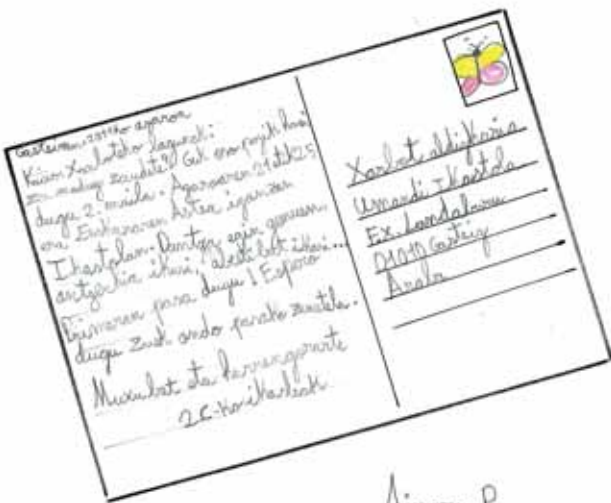 Gasteizen, 2011ko azaroa
Kaixo Xarboteko lagunok:
zer moduz zaudete? Guk oso pozik hasi
dugu 2. maila. Azaroaren 21etik 25
era Euskararen Astea izan zen
Ikastolan. Dantza egin genuen,
antzerkia ikusi, abesti bat ikasi...
Primeran pasa dugu! Espero
dugu zuek ondo pasako zenutela.
Muxu bat eta hurrengorarte
2C-ko ikasleak
Xarbot aldizkaria
Umandi Ikastola
Ex. Landaberde
01010 Gasteiz
Araba